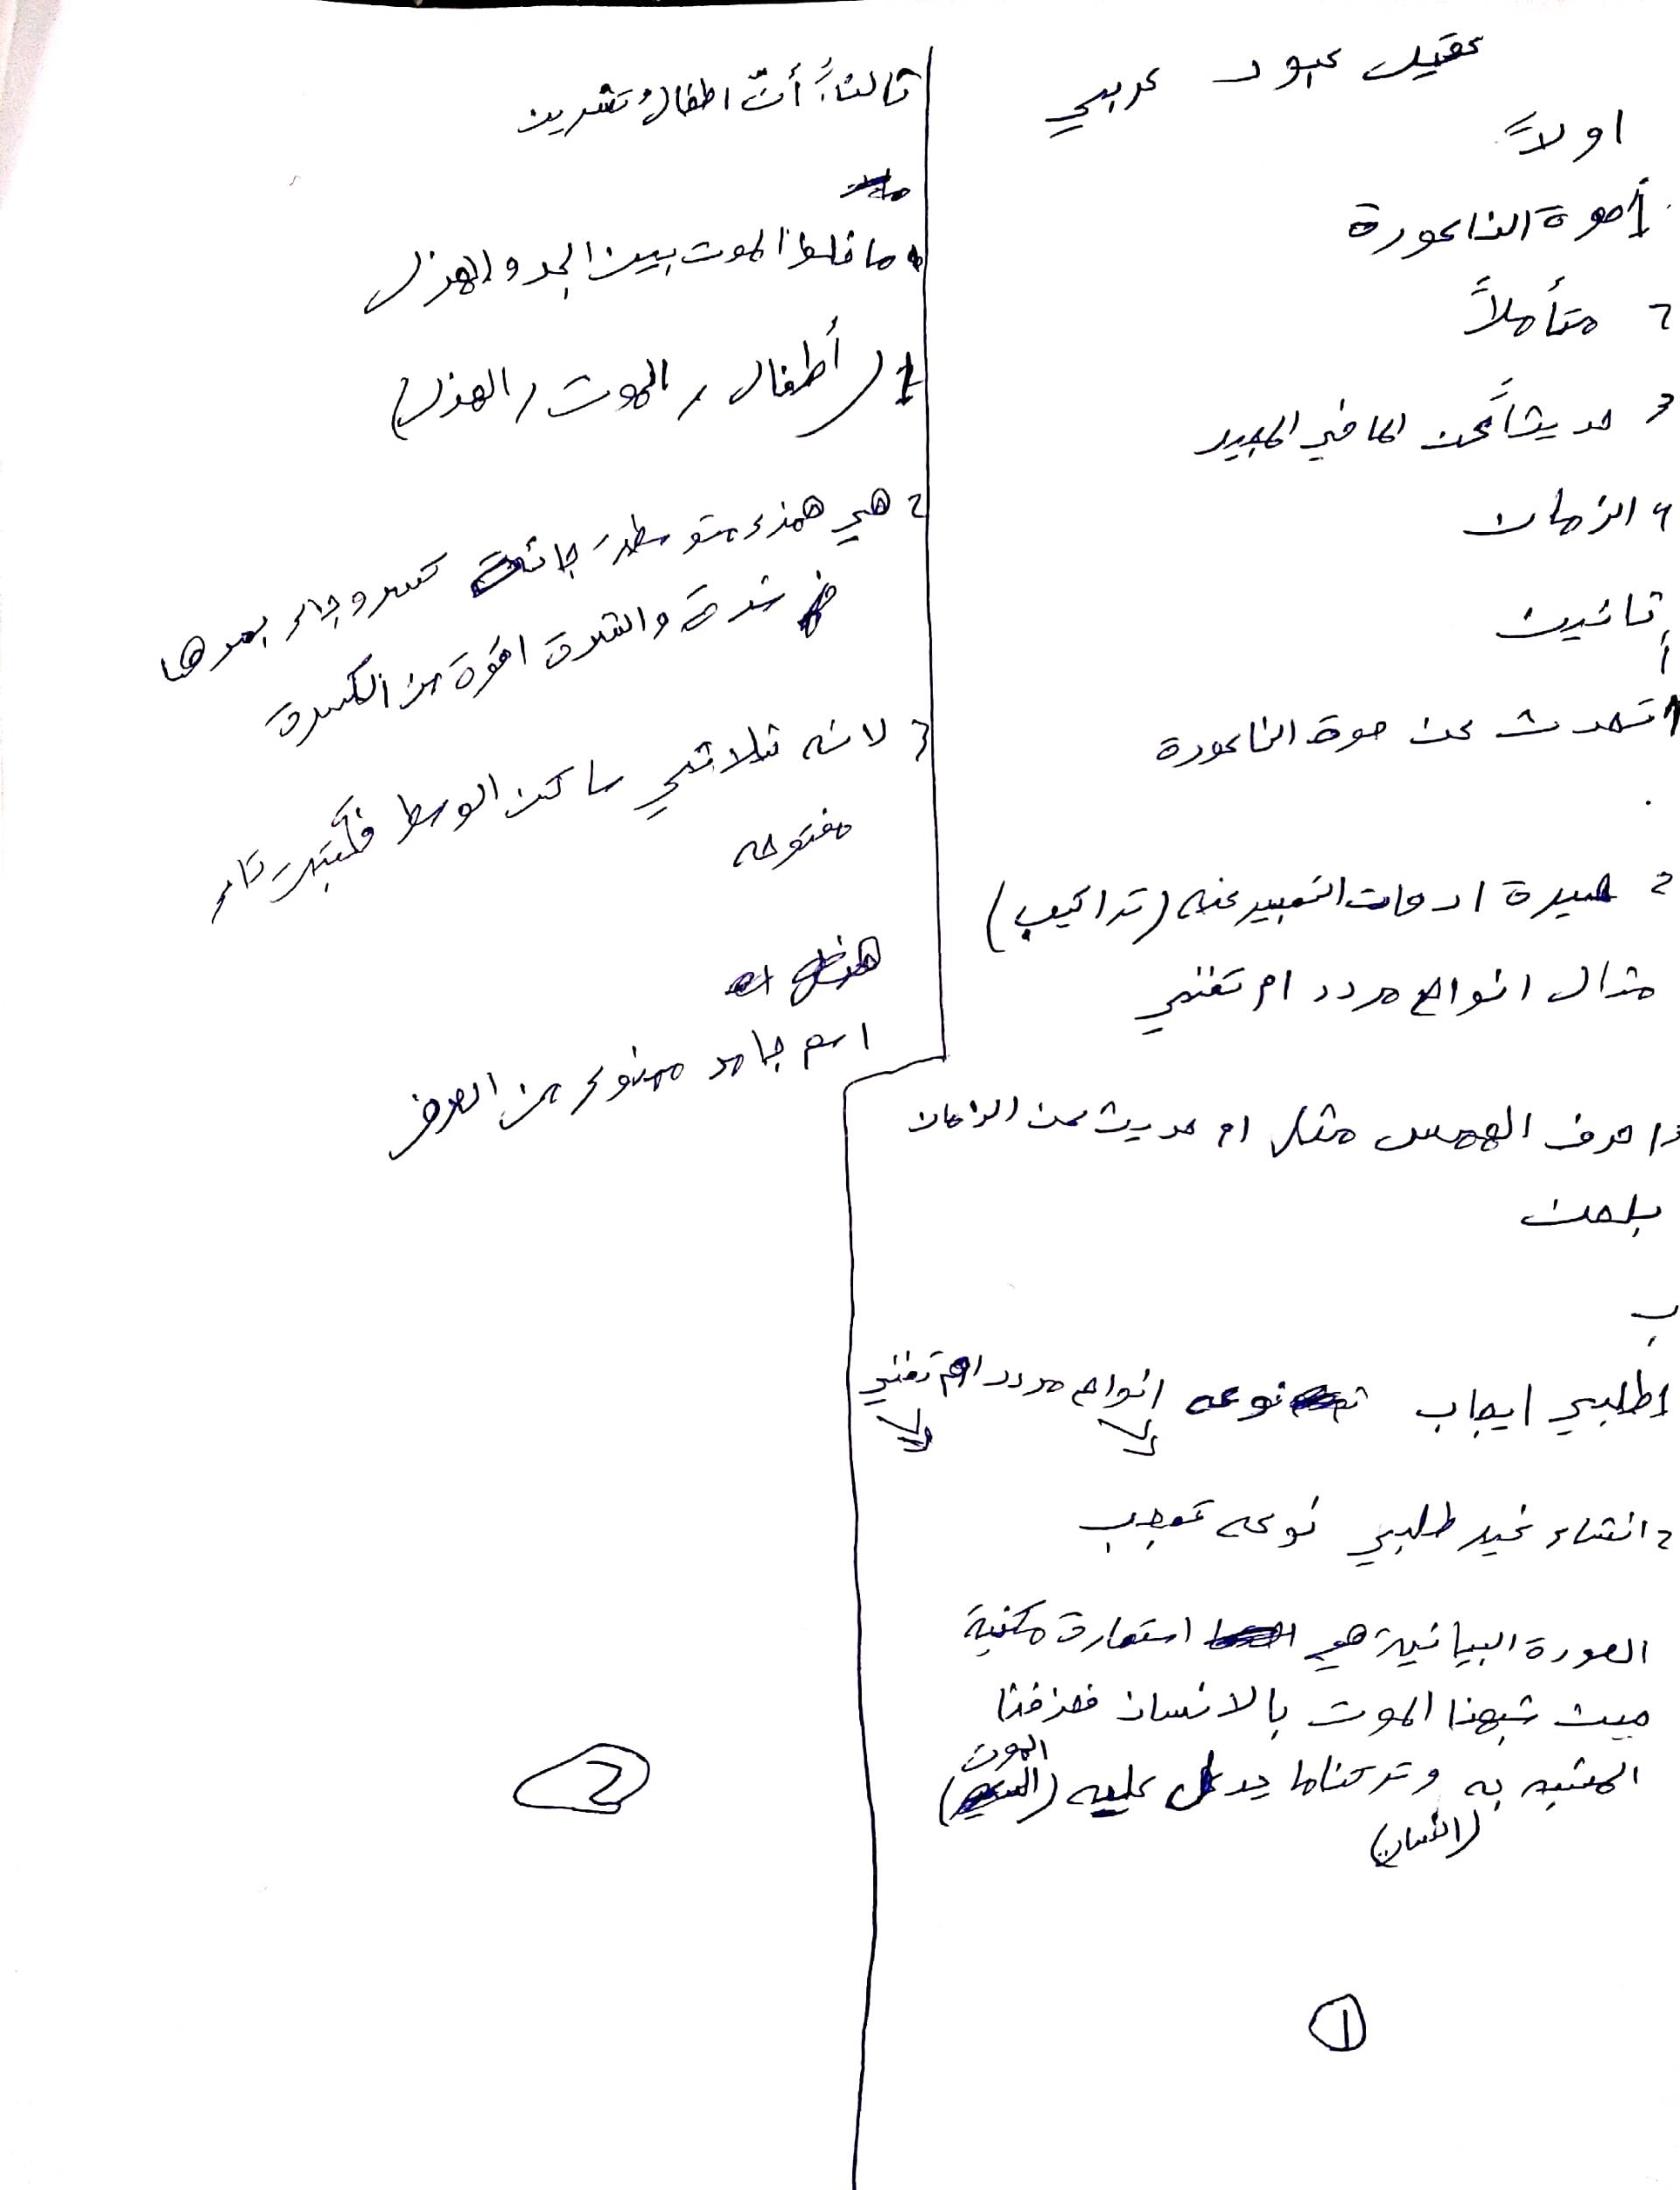 عقيل عبود عربي
اولاً
1 صوت الناعورة
2 متأملاً
3 حديثاً عن الماضي البعيد
4 الزمان
ثانين
أ
1 تحدث عن صوت الناعورة
2 ادوات التعبير عنه (تراكيب)
مثال انواح مردد ام تغني
3 احرف الهمس مثل ام حديث عن الزمان
بلحن
ب
1 طلبي ايجاب نوعه انواح مردد ام تغني
2 انشاء غير طلبي نوعه تعجب
الصورة البيانية هي استعارة مكنية
حيث شبهنا الموت بالانسان فحذفنا
المشبه به وتركنا ما يدل عليه (الموت)
(انسان)
1
ثالثاً: أنّ اطفالُ تشرين
ما خلط الموت بين الجد والهزل
1 (أطفال, الموت, الهزل)
2 هي همزه متوسطة جائت كسر وجاء بعدها
شدة والشدة اقوة من الكسرة
3 لانه ثلاثي ساكن الوسط فكُتبت تاء
مفتوحه
اسم جامد ممنوع من الصرف
2